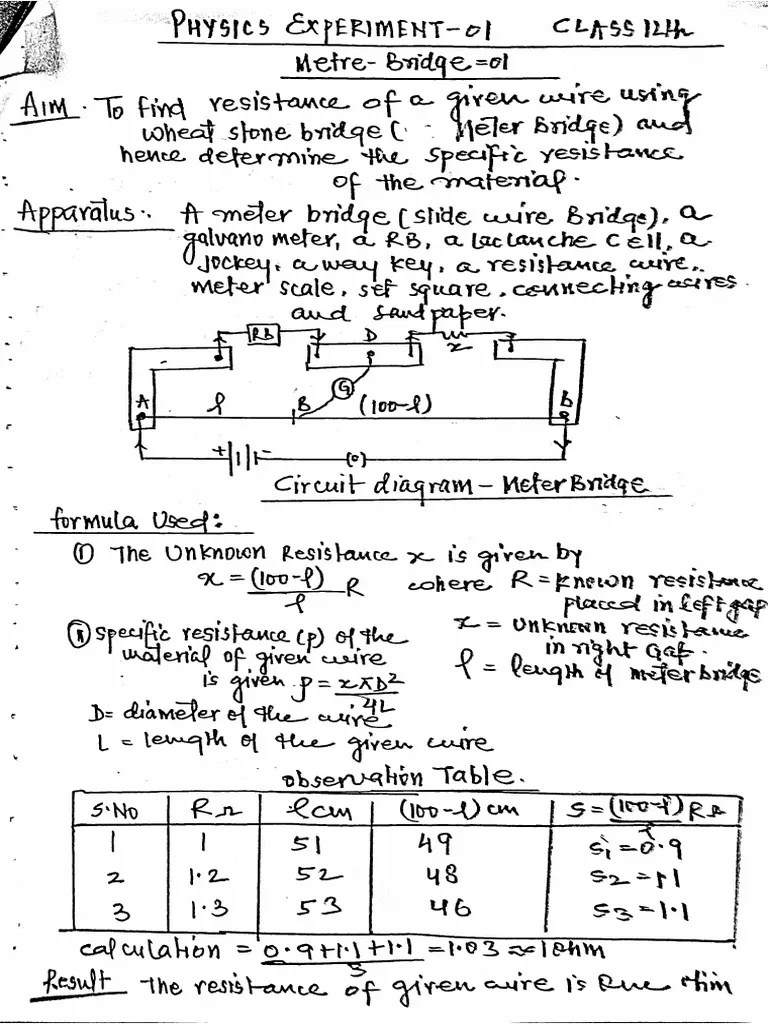 PHYSICS EXPERIMENT-01 CLASS 12th
Metre-Bridge=01
Aim. To find resistance of a given wire using
wheat stone bridge ( Meter Bridge) and
hence determine the specific resistance
of the material.
Apparatus:. A meter bridge (slide wire Bridge), a
galvano meter, a RB, a laclanche cell, a
Jockey, a way key, a resistance wire,
meter scale, set square, connecting wires
and sand paper.
RB D x
G
A l B (100-l) B
+ - (o)
Circuit diagram - Meter Bridge
formula Used:
(i) The Unknown Resistance x is given by
x = (100-l) R where R = known resistance
l placed in left gap
(ii) specific resistance (ρ) of the x = unknown resistance
material of given wire in right Gap.
is given ρ = xπD² l = length of meter bridge
4L
D = diameter of the wire
L = length of the given wire
observation Table.
S.No RΩ l cm (100-l) cm S = (100-l) RΩ
l
1 1 51 49 S1 = 0.9
2 1.2 52 48 S2 = 1.1
3 1.3 53 46 S3 = 1.1
calculation = 0.9+1.1+1.1 = 1.03 ≈ 1 ohm
3
Result The resistance of given wire is